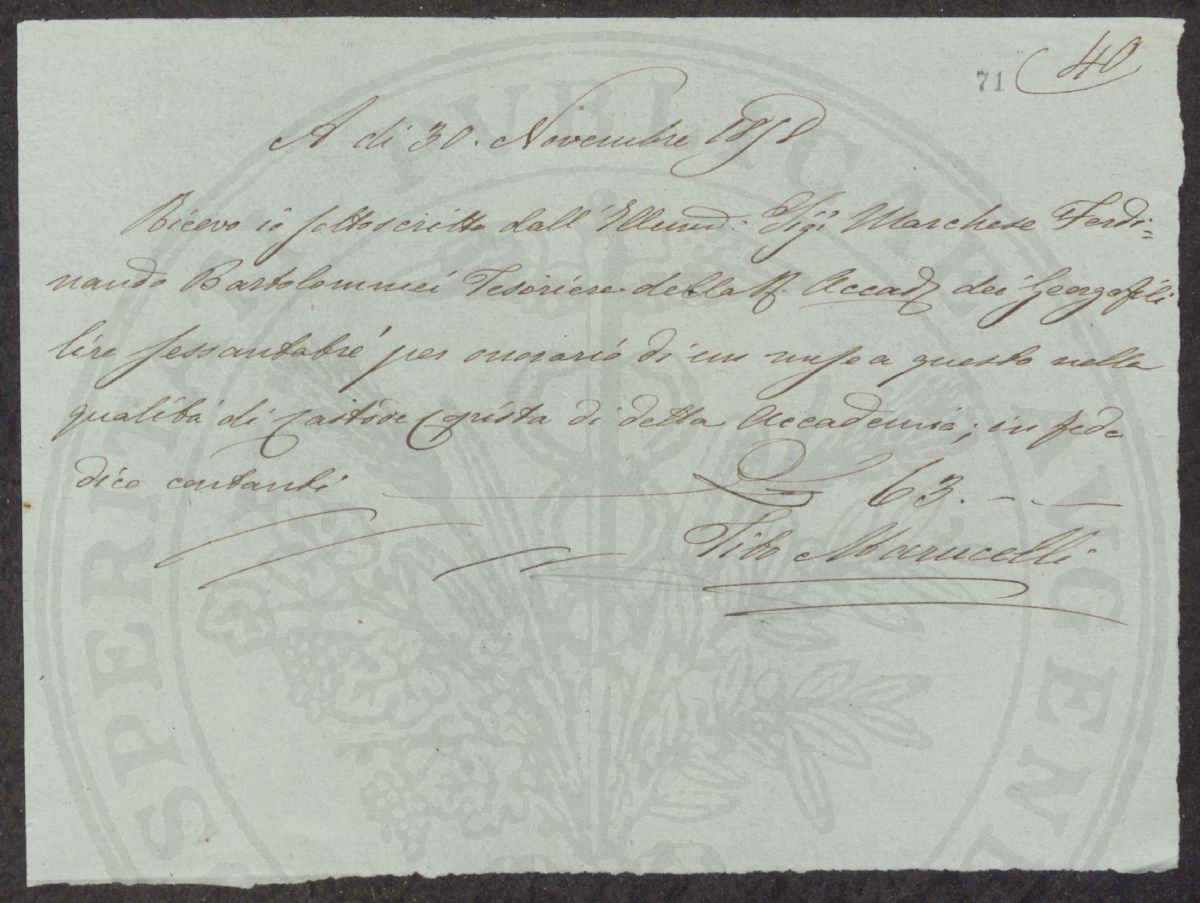 71 40
A di 30. Novembre 1858
Ricevo io sottoscritto dall' Illmo. Sigr. Marchese Ferdi=
nando Bartolommei Tesoriere della R. Accad. dei Georgofili
lire sessantatré per onorario di un mese a questo nella
qualità di Custode Copista di detta Accademia; in fede
dico contanti £ 63. - -
Tito Marucelli
PROSPERITATI PUBLICAE AUGENDAE